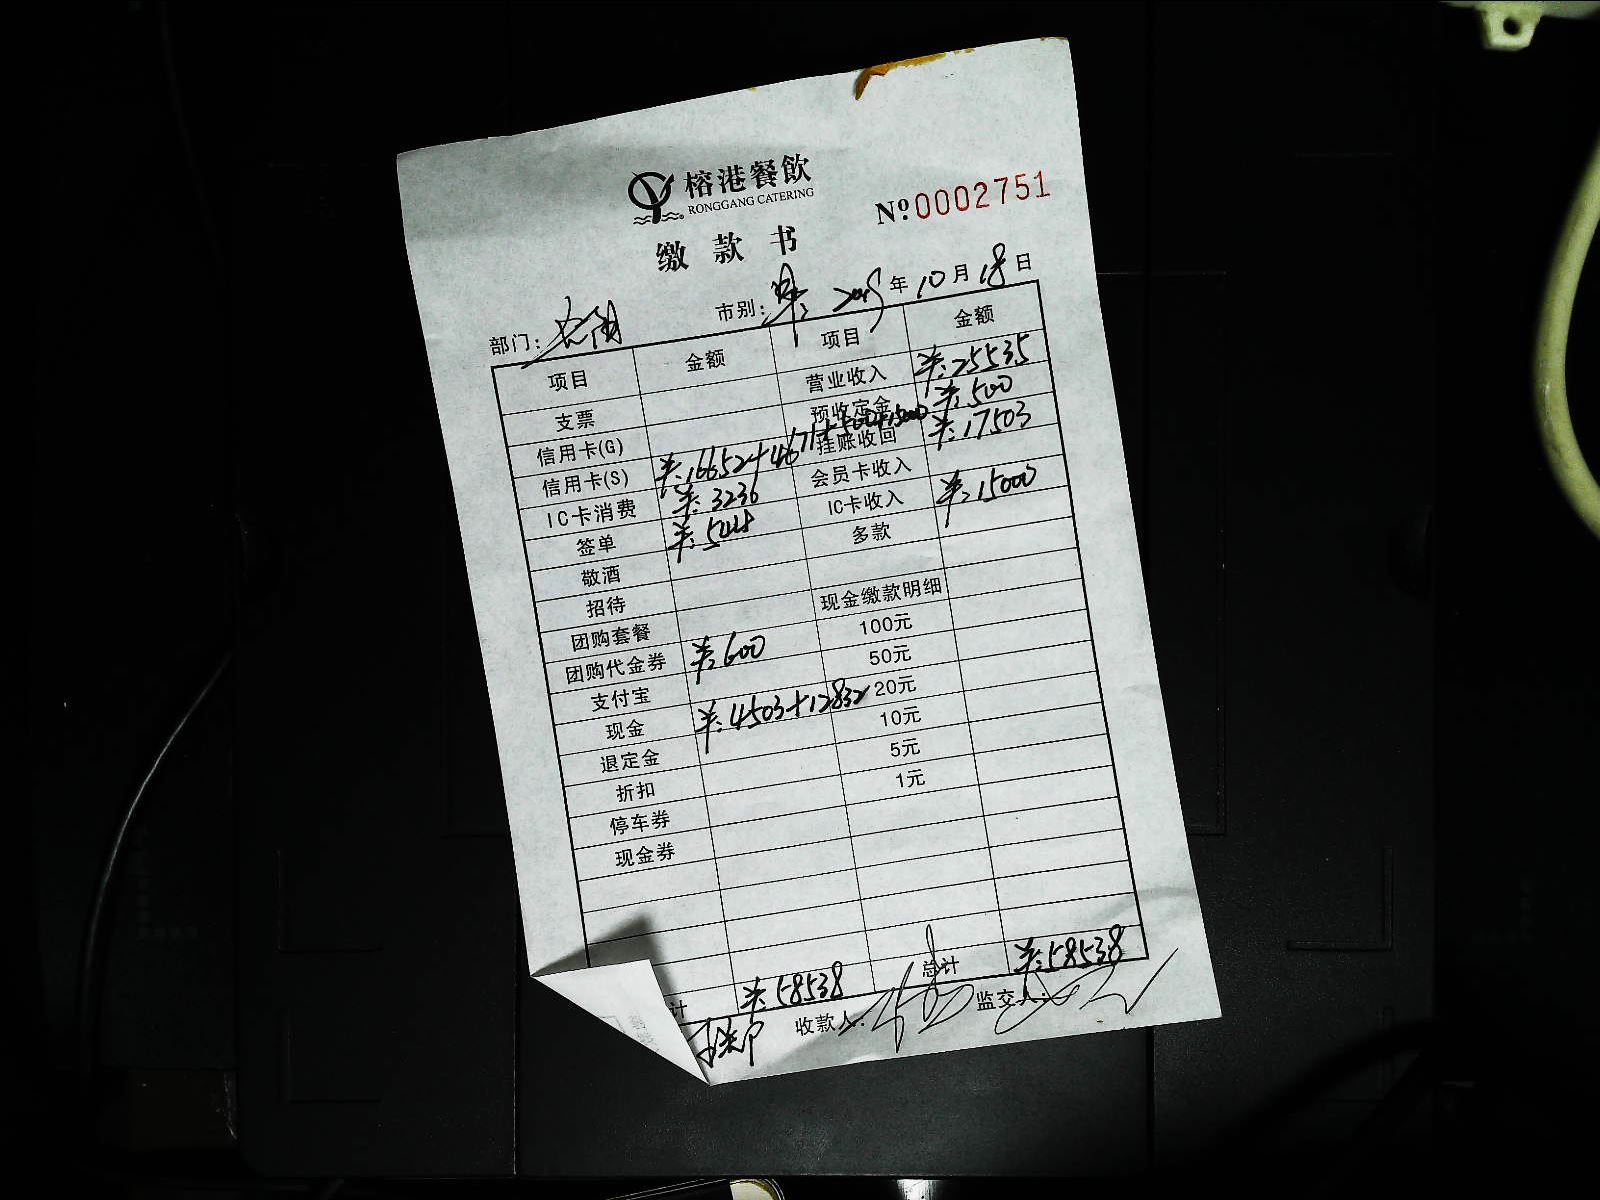 榕港餐飲
RONGGANG CATERING
№0002751
缴款书
部门: 市别: 2015年10月18日
项目 金额 项目 金额
支票 营业收入 ¥:25535
信用卡(G) 预收定金 ¥:500
信用卡(S) ¥:16652+4671+500+15000 挂账收回 ¥:17503
IC卡消费 ¥:3236 会员卡收入
签单 ¥:544 IC卡收入 ¥:15000
敬酒 多款
招待
团购套餐 现金缴款明细
团购代金券 ¥:600 100元
支付宝 50元
现金 ¥:4503+12832 20元
退定金 10元
折扣 5元
停车券 1元
现金券
计 ¥:58538 总计 ¥:58538
收款人: 监交人: